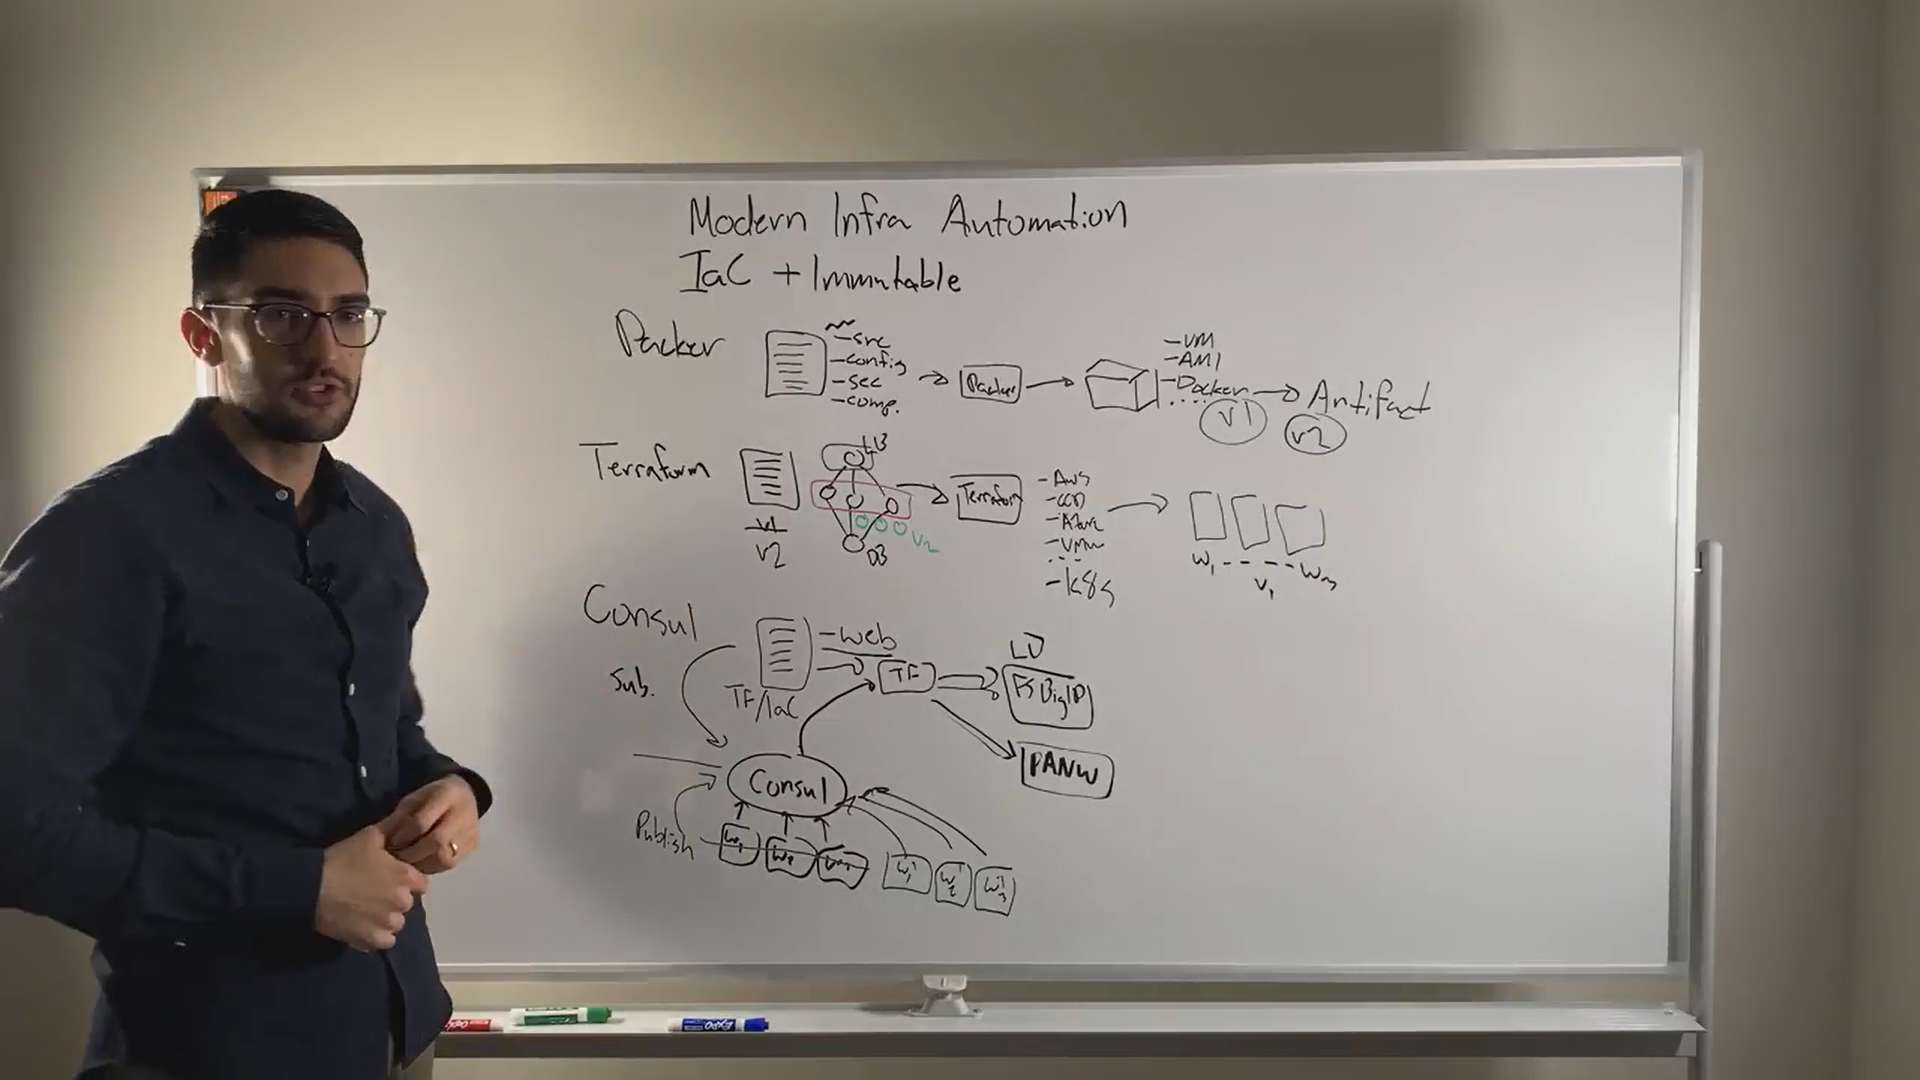 Modern Infra Automation
IaC + Immutable
Packer
- src
- config
- sec
- comp.
Packer
- VM
- AMI
- Docker
....
Artifact
V1
V2
Terraform
V1
V2
LB
DB
V2
Terraform
- AWS
- Azure
- VMW
...
- K8s
W1 - - - - W3
V1
Consul
Sub.
TF/IaC
- web
TF
F5 BigIP
PANW
Consul
Publish
W1
W2
W1'
W2'
W3'
EXPO